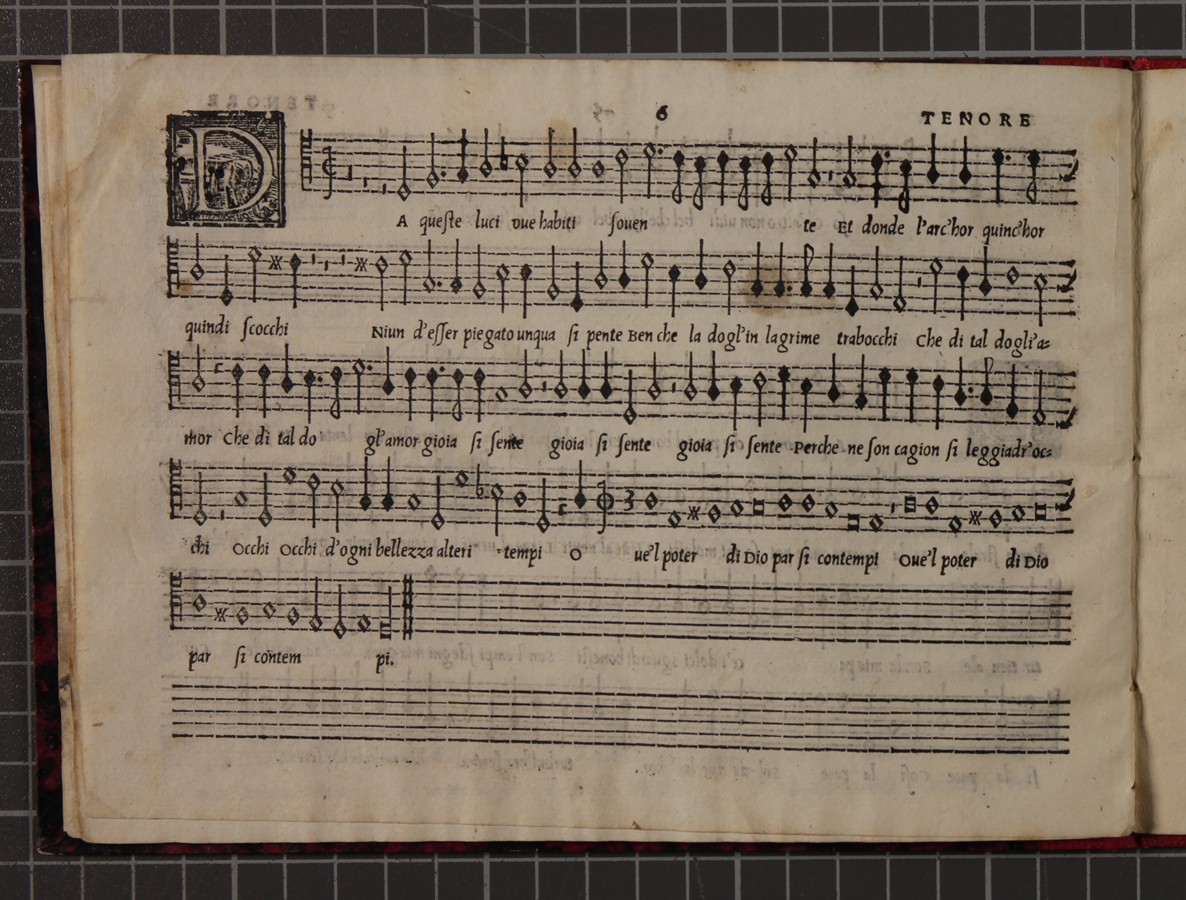 6 TENORE
DA queſte luci oue habiti ſouen te Et donde l'arc'hor quinc'hor
quindi ſcocchi Niun d'eſſer piegato unqua ſi pente Ben che la dogl'in lagrime trabocchi Che di tal dogli'a=
mor Che di tal do gl'amor gioia ſi ſente gioia ſi ſente gioia ſi ſente Perche ne ſon cagion ſi leggiadr'oc=
chi Occhi Occhi d'ogni bellezza alteri tempi O ue'l poter di Dio par ſi contempi Oue'l poter di Dio
par ſi contem pi.